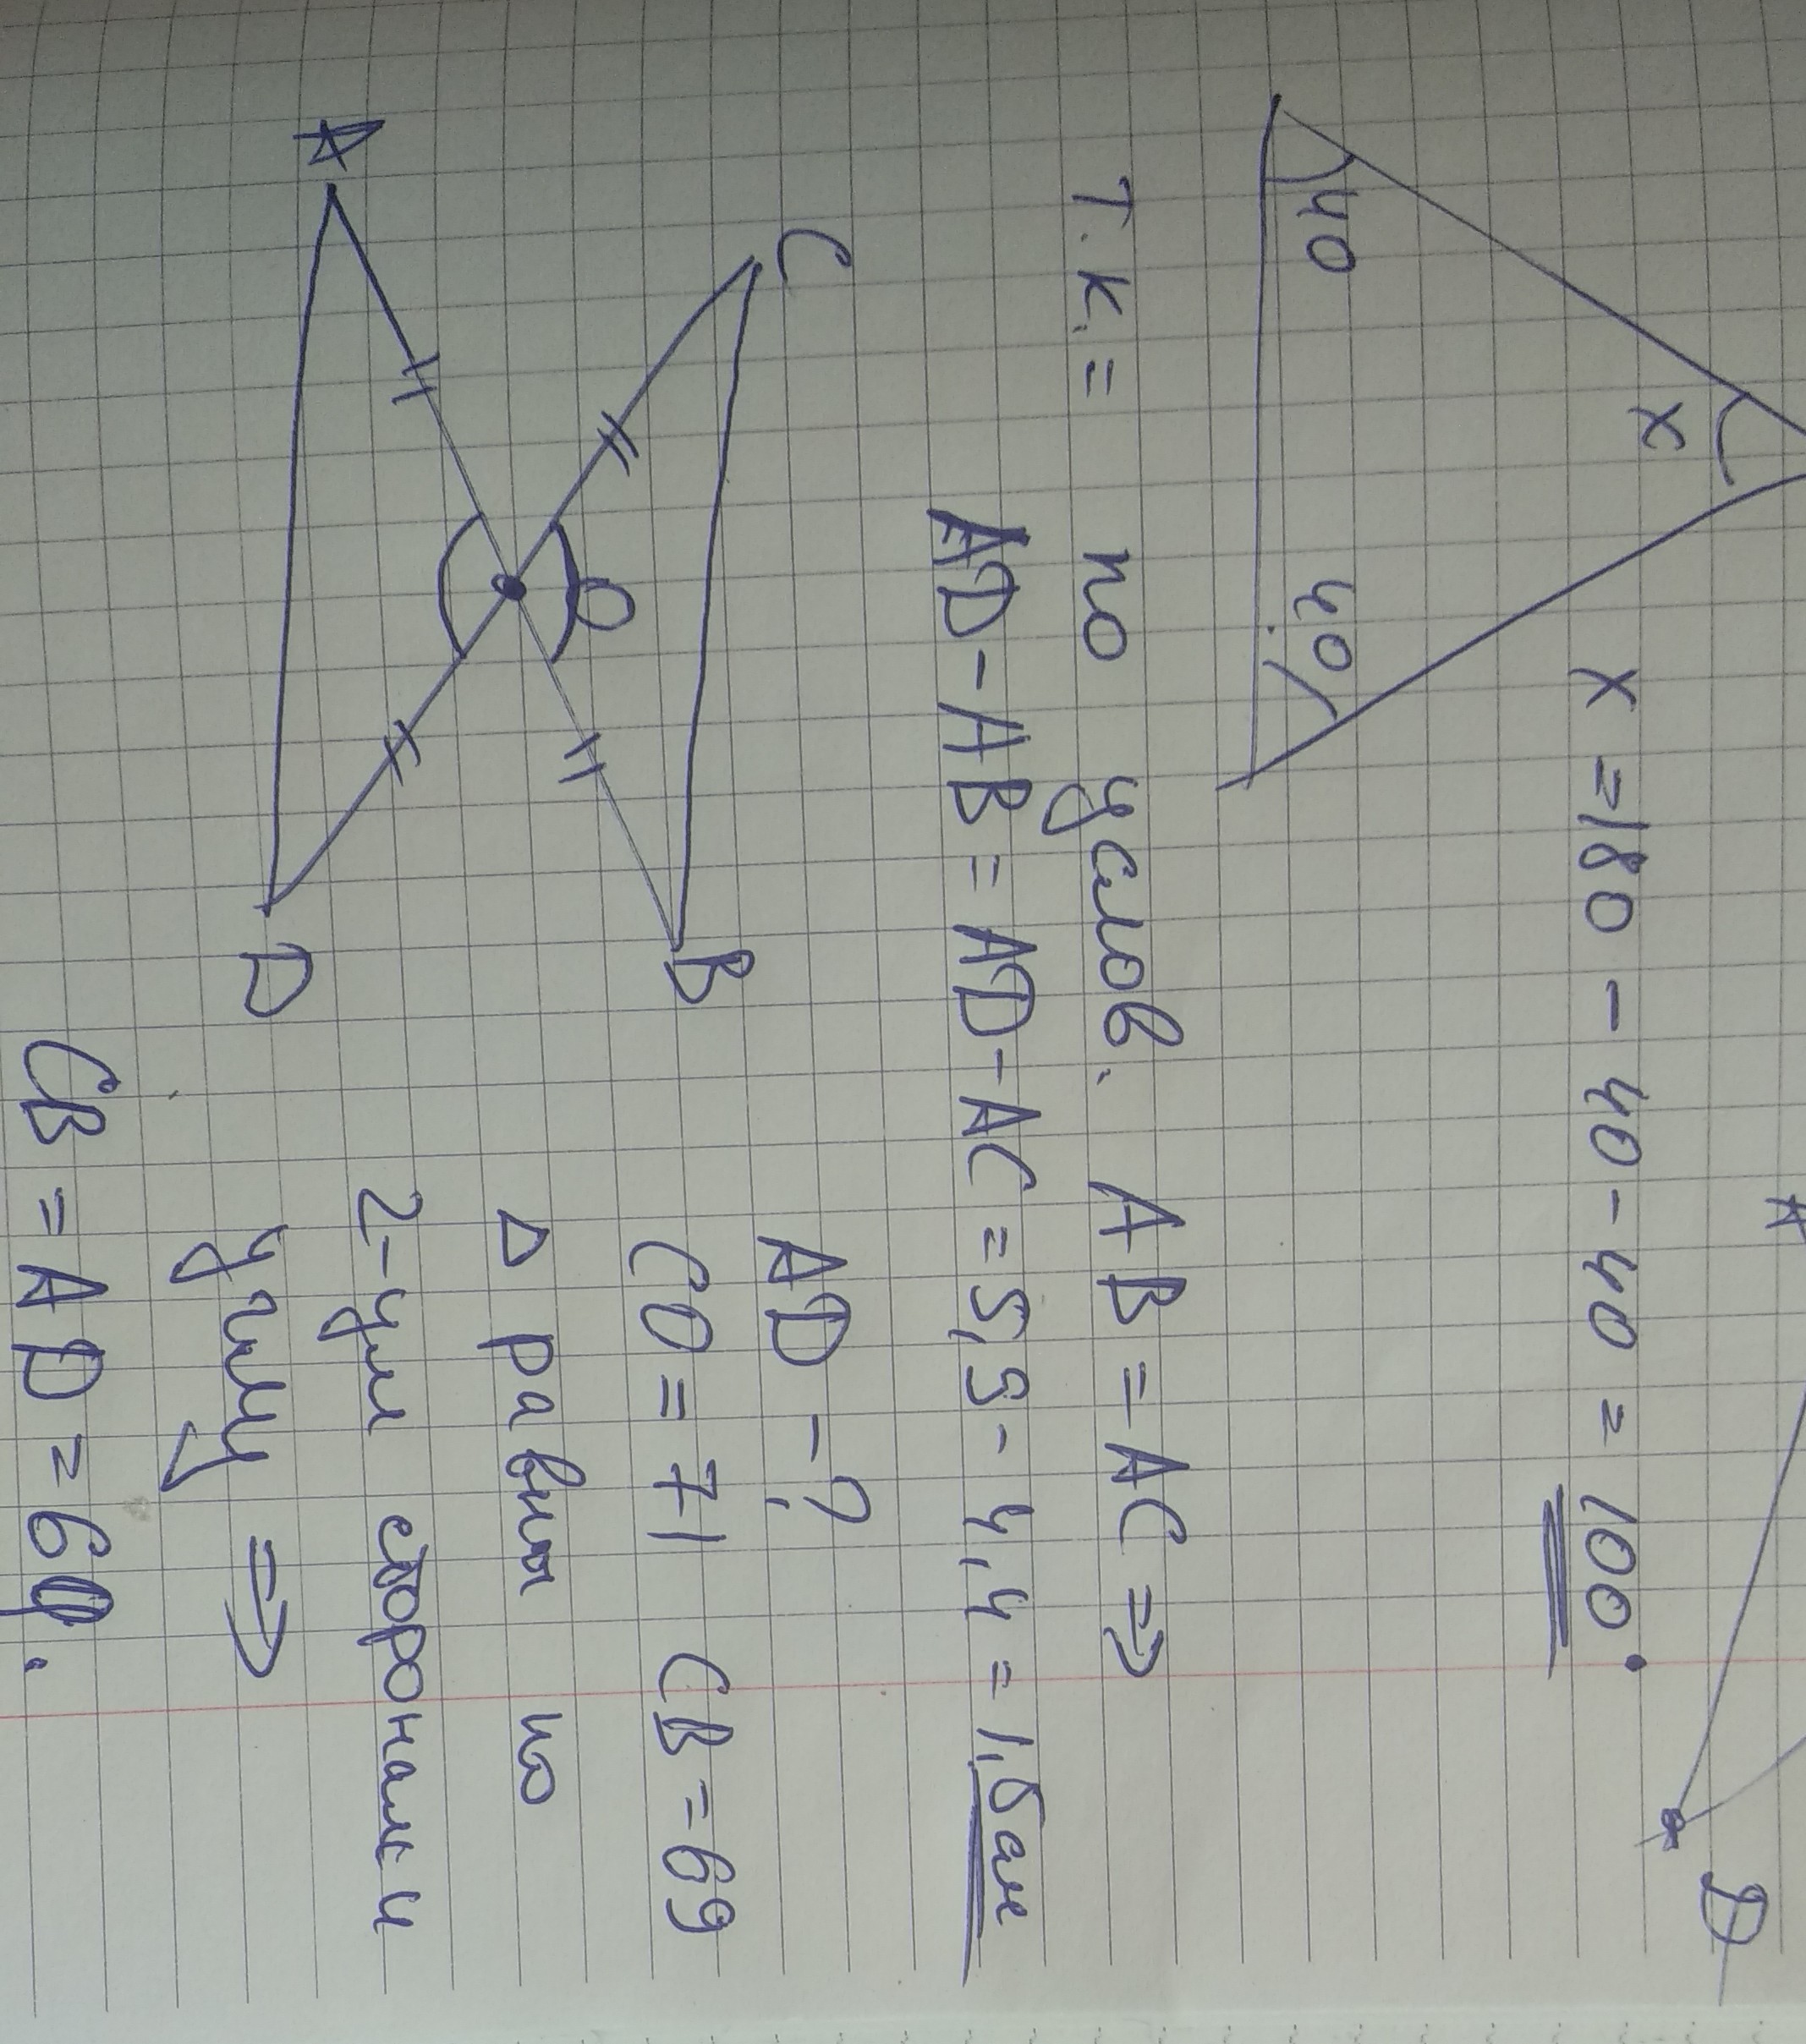 A
D
X
X = 180 - 40 - 40 = 100.
40
40
Т.к. = по услов. AB = AC ⇒
AD - AB = AD - AC = 5,9 - 4,4 = 1,5 см
C
AD - ?
A
O
B
CO = 71 CB = 69
△ равны по
2-ум сторонам и
D
углу ⇒
CB = AD = 69.